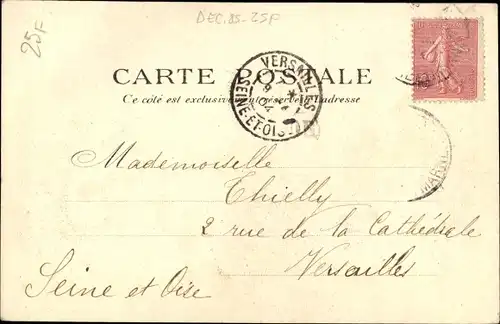 DEC.85-25F
25F
CARTE POSTALE
Ce côté est exclusivement réservé à l'adresse
VERSAILLES
SEINE-ET-OISE
Mademoiselle
Thielly
2 rue de la Cathédrale
Versailles
Seine et Oise